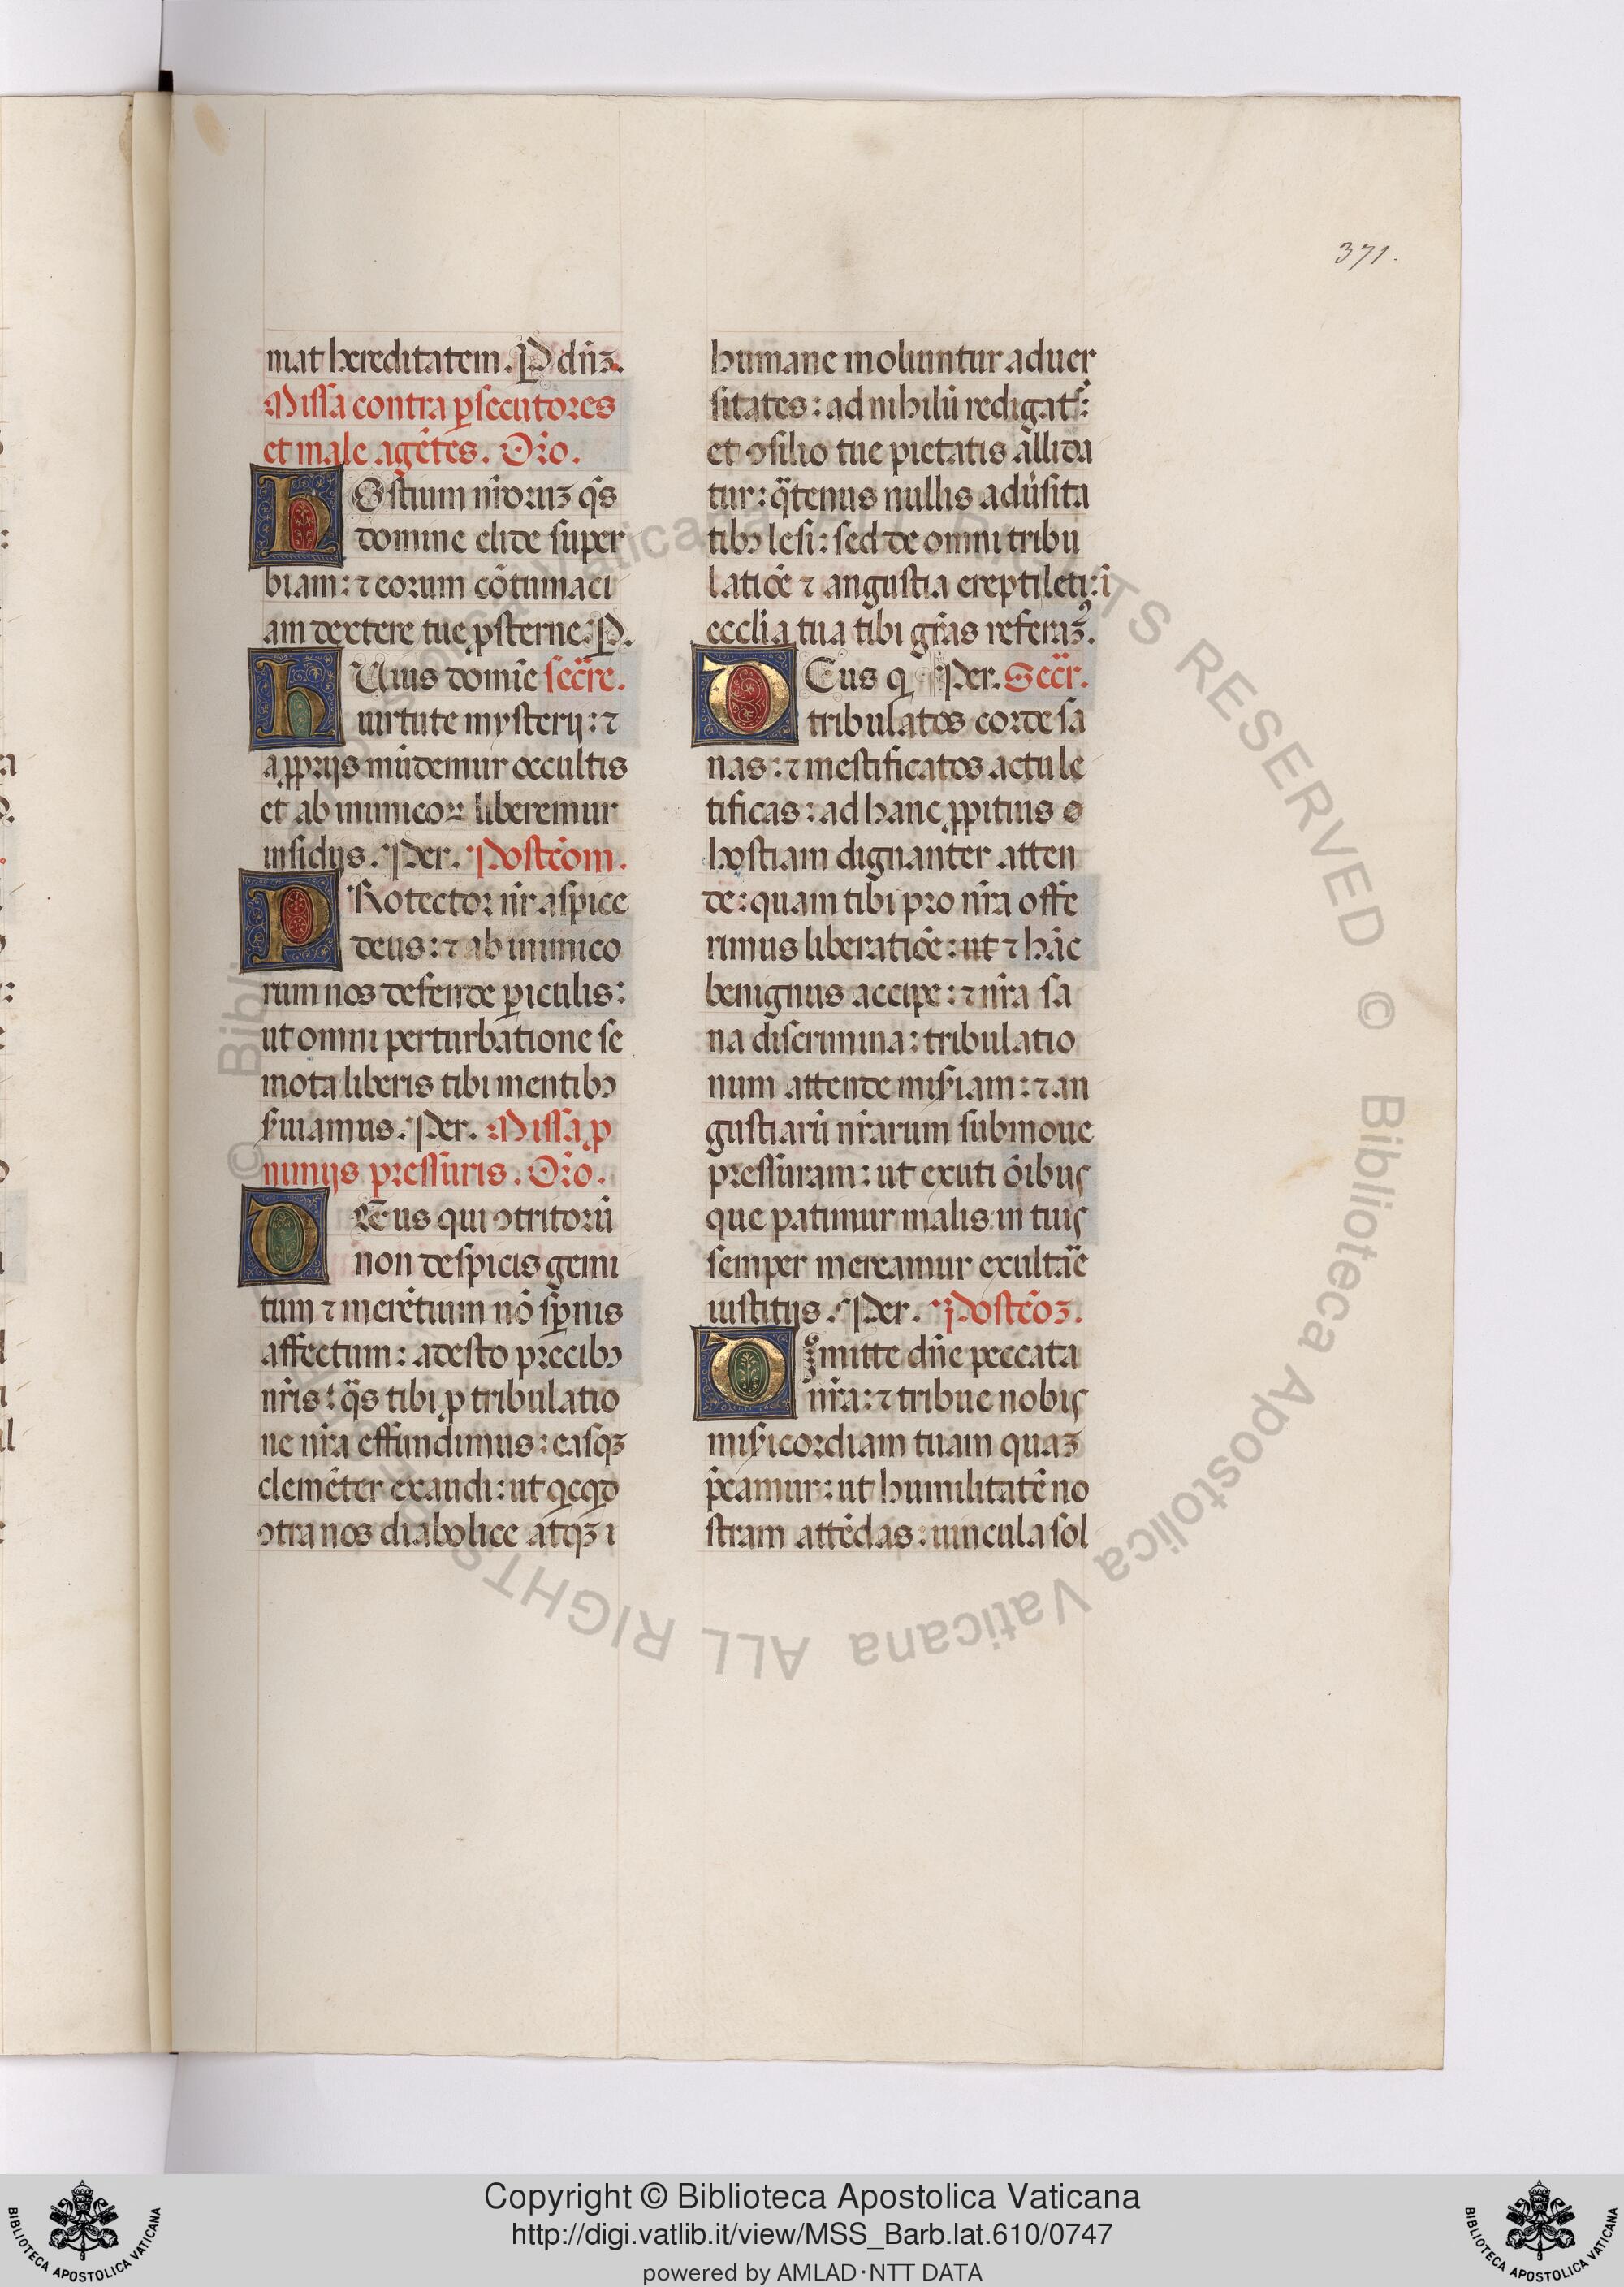 371.
mat hereditatem. P dñꝫ.
Missa contra ꝑsecutores
et male agẽtes. Oro.
HOstium nroruꝫ qs
domine elide super
biam: ⁊ eorum cõtumaci
am dextere tue ꝓsterne. P.
HUius domiẽ secre.
uirtute mysterij: ⁊
a ꝓprijs mũdemur occultis
et ab inimicoꝝ liberemur
insidijs. Per. Postcom.
PRotector nr aspice
deus: ⁊ ab inimico
rum nos defende ꝑiculis:
ut omni perturbatione se
mota liberis tibi mentibꝰ
ẜuiamus. Per. Missa ꝓ
nimijs pressuris. Oro.
DEus qui ꝯtritorũ
non despicis gemi
tum ⁊ merẽtium nõ sꝑnis
affectum: adesto precibꝰ
nris: qs tibi ꝓ tribulatio
ne nra effundimus: easqꝫ
clemẽter exaudi: ut qcqd
ꝯtra nos diabolice atqꝫ i
humane moliuntur aduer
sitates: ad nihilũ redigatᷣ:
et ꝯsilio tue pietatis allida
tur: qtenus nullis adũsita
tibꝰ lesi: sed de omni tribu
latiõe ⁊ angustia erepti leti: ĩ
ecclia tua tibi gras referaꝫ.
DEus q Per. Secr.
tribulatos corde sa
nas: ⁊ mestificatos actu le
tificas: ad hanc ꝓpitius
hostiam dignanter atten
de: quam tibi pro nra offe
rimus liberatiõe: ut ⁊ hãc
benignus accipe: ⁊ nra sa
na discrimina: tribulatio
num attende misẜiam: ⁊ an
gustiarũ nrarum submoue
pressuram: ut exuti õibus
que patimur malis in tuis
semper mereamur exultãe
iustitijs. Per. Postcoꝫ.
Dꝫmitte dñe peccata
nra: ⁊ tribue nobis
misẜicordiam tuam quaꝫ
p̃camur: ut humilitatẽ no
stram attẽdas: uincula sol
Copyright © Biblioteca Apostolica Vaticana
http://digi.vatlib.it/view/MSS_Barb.lat.610/0747
powered by AMLAD·NTT DATA
BIBLIOTECA APOSTOLICA VATICANA
BIBLIOTECA APOSTOLICA VATICANA
© Biblioteca Apostolica Vaticana ALL RIGHTS RESERVED © Biblioteca Apostolica Vaticana ALL RIGHTS RESERVED